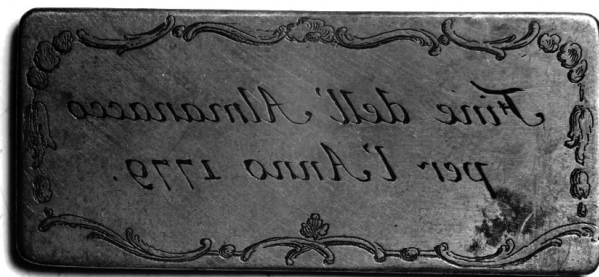 Fine dell' Almanacco
per l'Anno 1779.